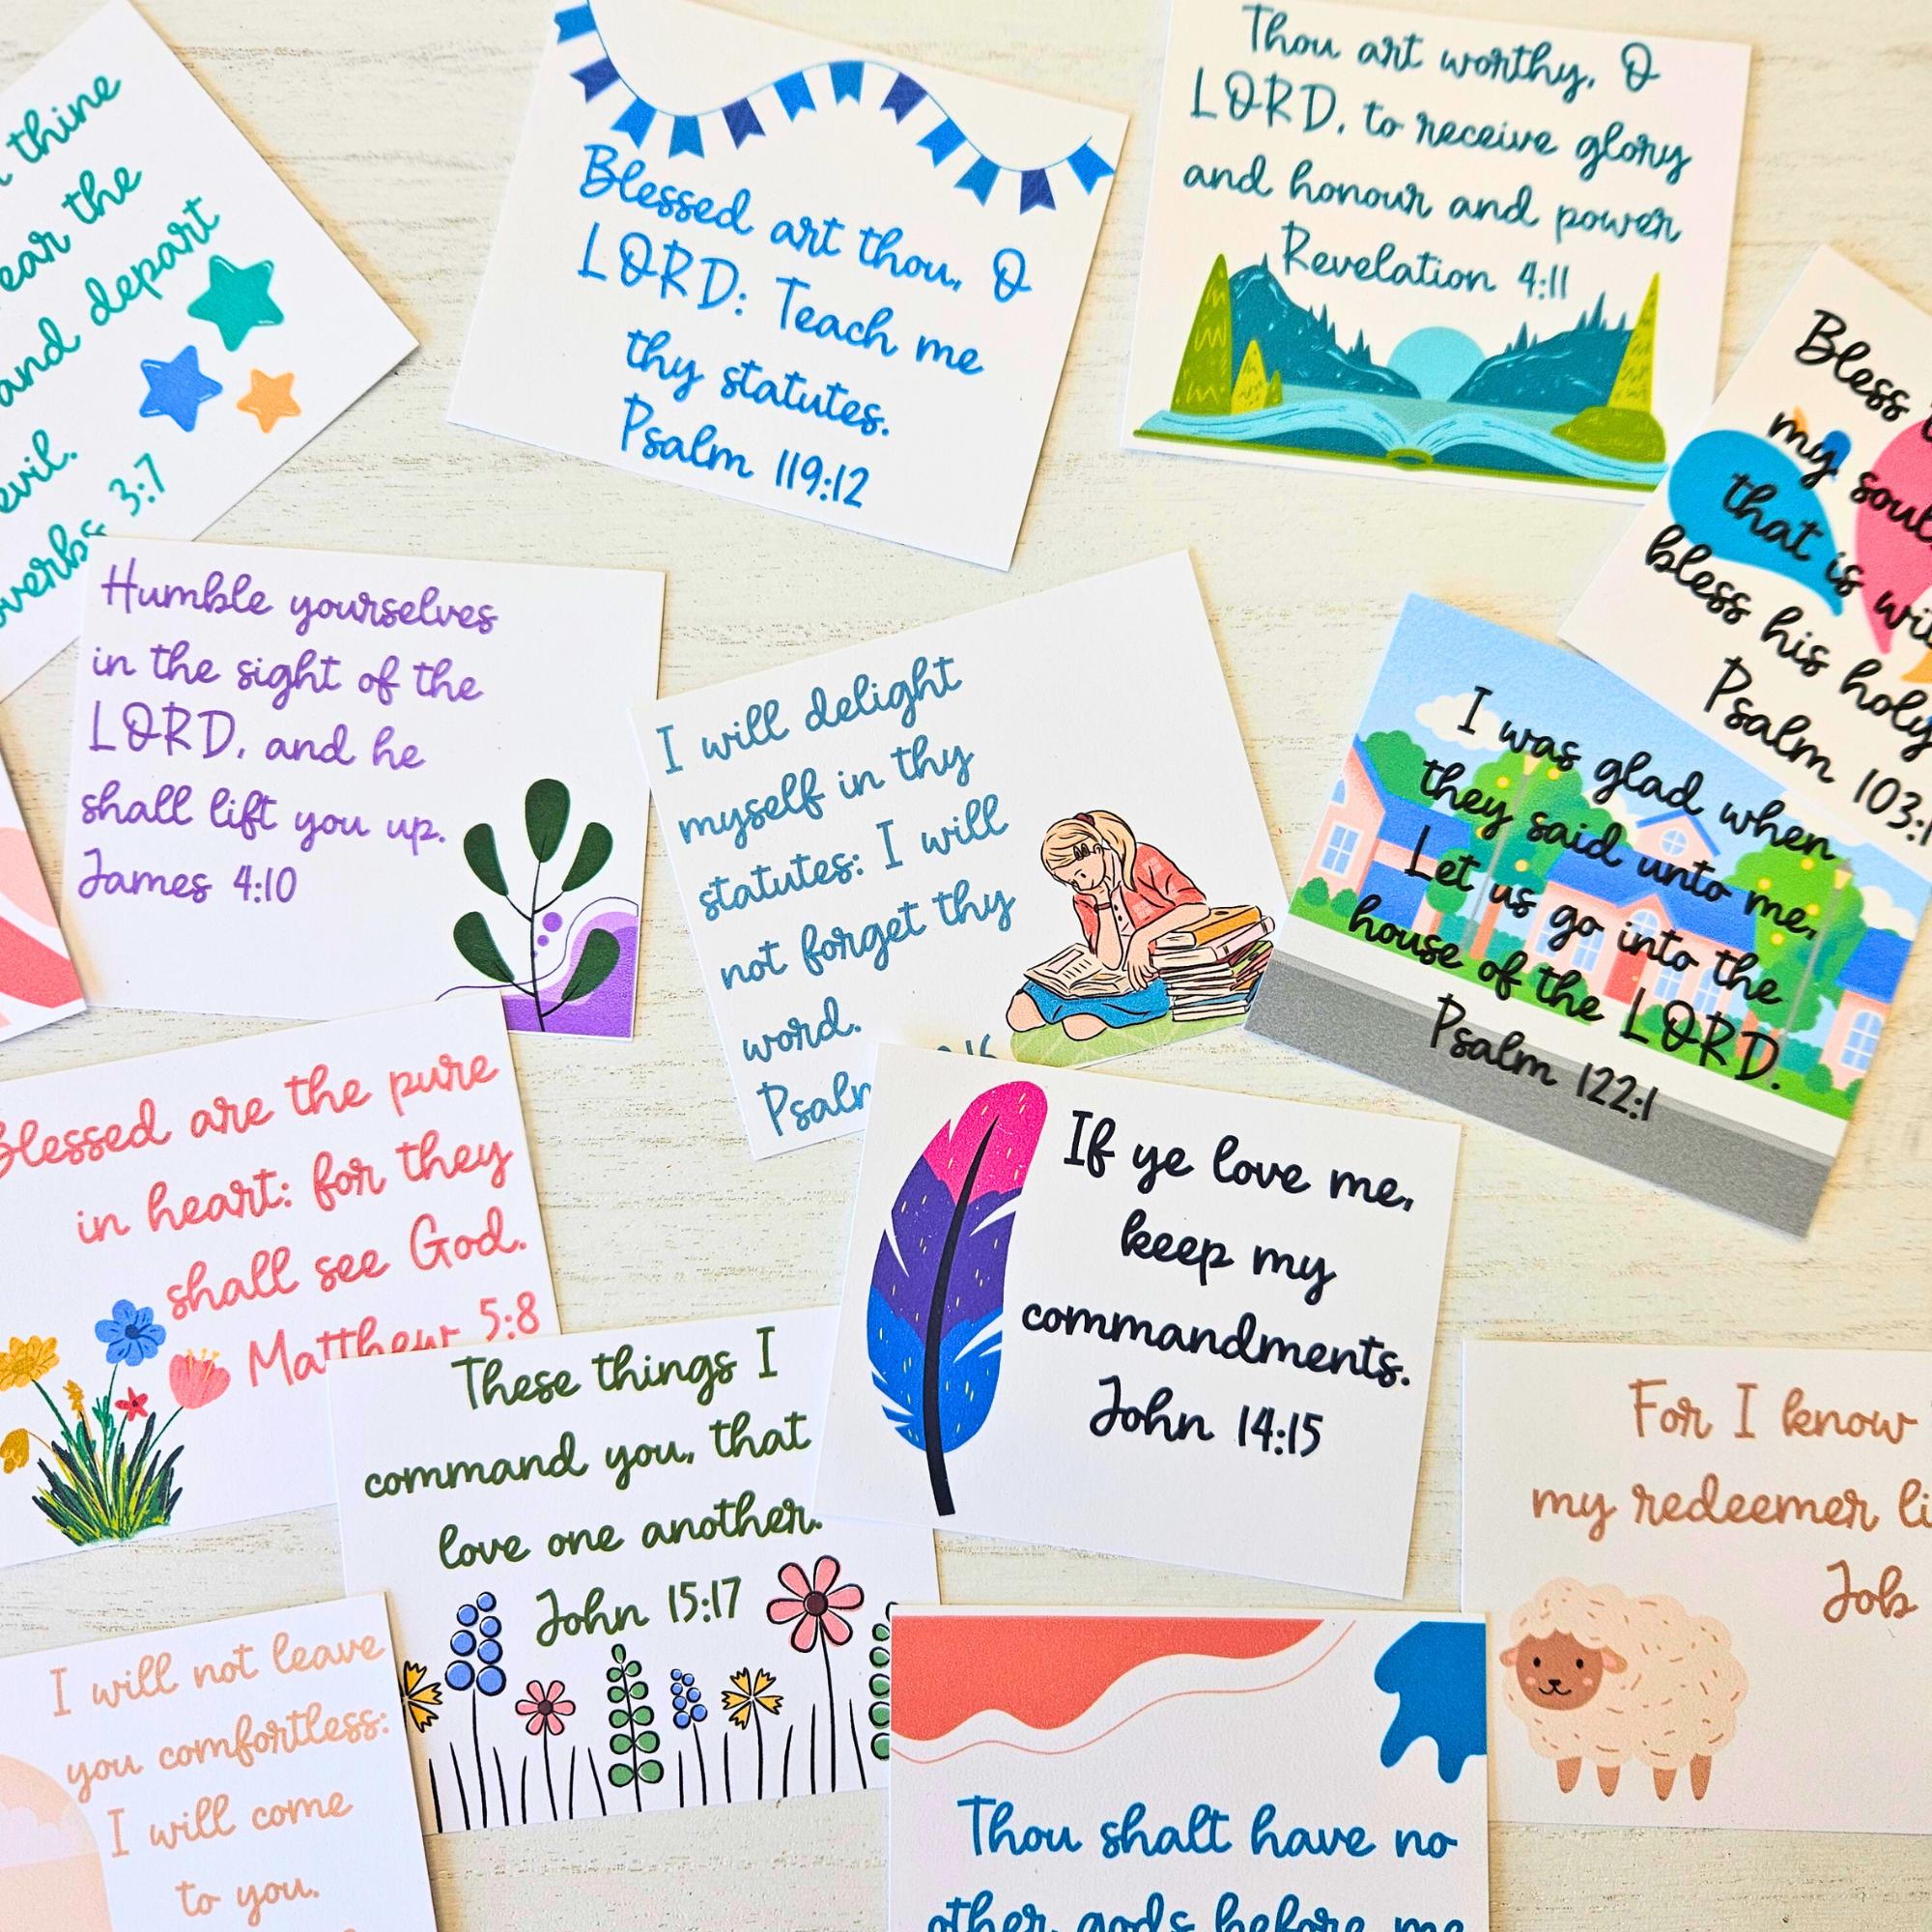 thine
ear the
and depart
evil.
overbs 3:7
Blessed art thou, O
LORD: Teach me
thy statutes.
Psalm 119:12
Thou art worthy, O
LORD, to receive glory
and honour and power
Revelation 4:11
Bless
my soul,
that is
bless his holy
Psalm 103:
Humble yourselves
in the sight of the
LORD, and he
shall lift you up.
James 4:10
I will delight
myself in thy
statutes: I will
not forget thy
word.
Psalm
I was glad when
they said unto me,
Let us go into the
house of the LORD.
Psalm 122:1
Blessed are the pure
in heart: for they
shall see God.
Matthew 5:8
If ye love me,
keep my
commandments.
John 14:15
These things I
command you, that
love one another.
John 15:17
For I know
my redeemer li
Job
I will not leave
you comfortless:
I will come
to you.
Thou shalt have no
other gods before me